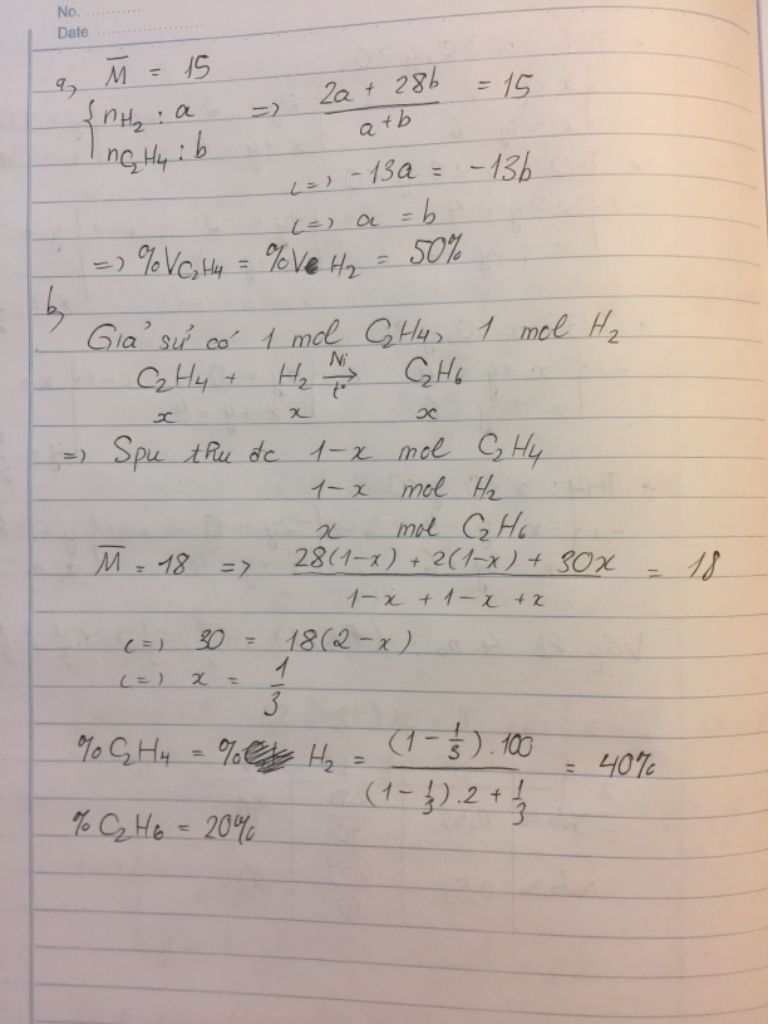 No. ..........
Date ..................
a, M̅ = 15
{ nH₂ : a => (2a + 28b)/(a+b) = 15
nC₂H₄ : b
<=> -13a = -13b
<=> a = b
=> %VC₂H₄ = %V H₂ = 50%
b,
Giả sử có 1 mol C₂H₄, 1 mol H₂
C₂H₄ + H₂ -Ni, t°-> C₂H₆
x x x
=> Spu thu đc 1-x mol C₂H₄
1-x mol H₂
x mol C₂H₆
M̅ = 18 => (28(1-x) + 2(1-x) + 30x)/(1-x + 1-x +x) = 18
<=> 30 = 18(2-x)
<=> x = 1/3
%C₂H₄ = % H₂ = ((1-1/3).100)/((1-1/3).2 + 1/3) = 40%
%C₂H₆ = 20%